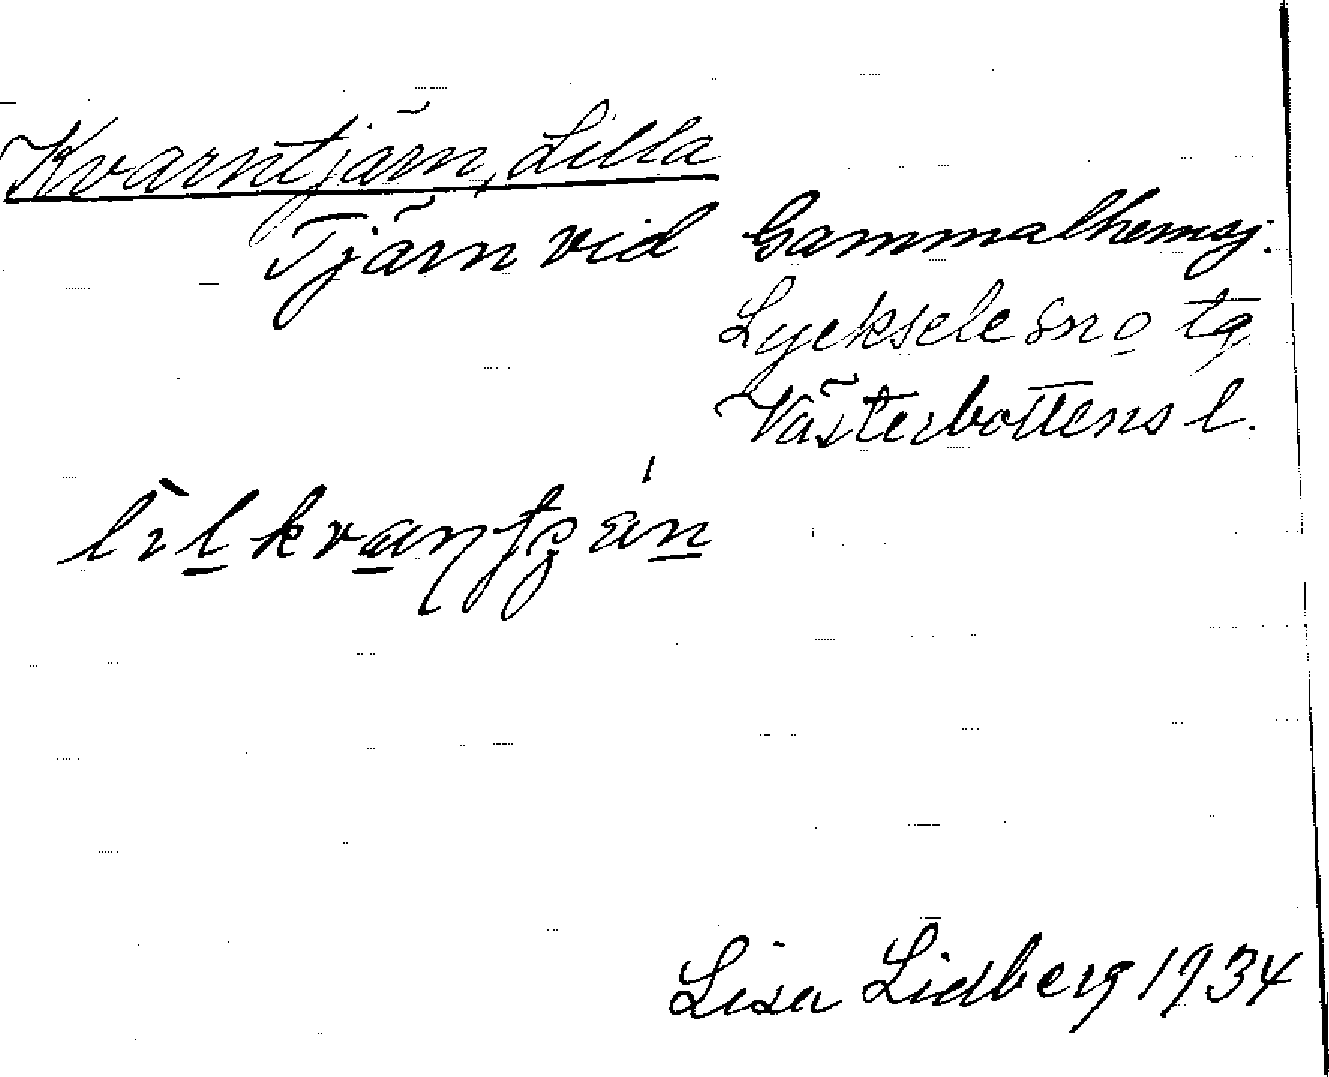 Kvarntjärn, Lilla
Tjärn vid Gammalhemsj.
Lycksele sn o tg
Västerbottens l.
Lisa Lidberg 1934